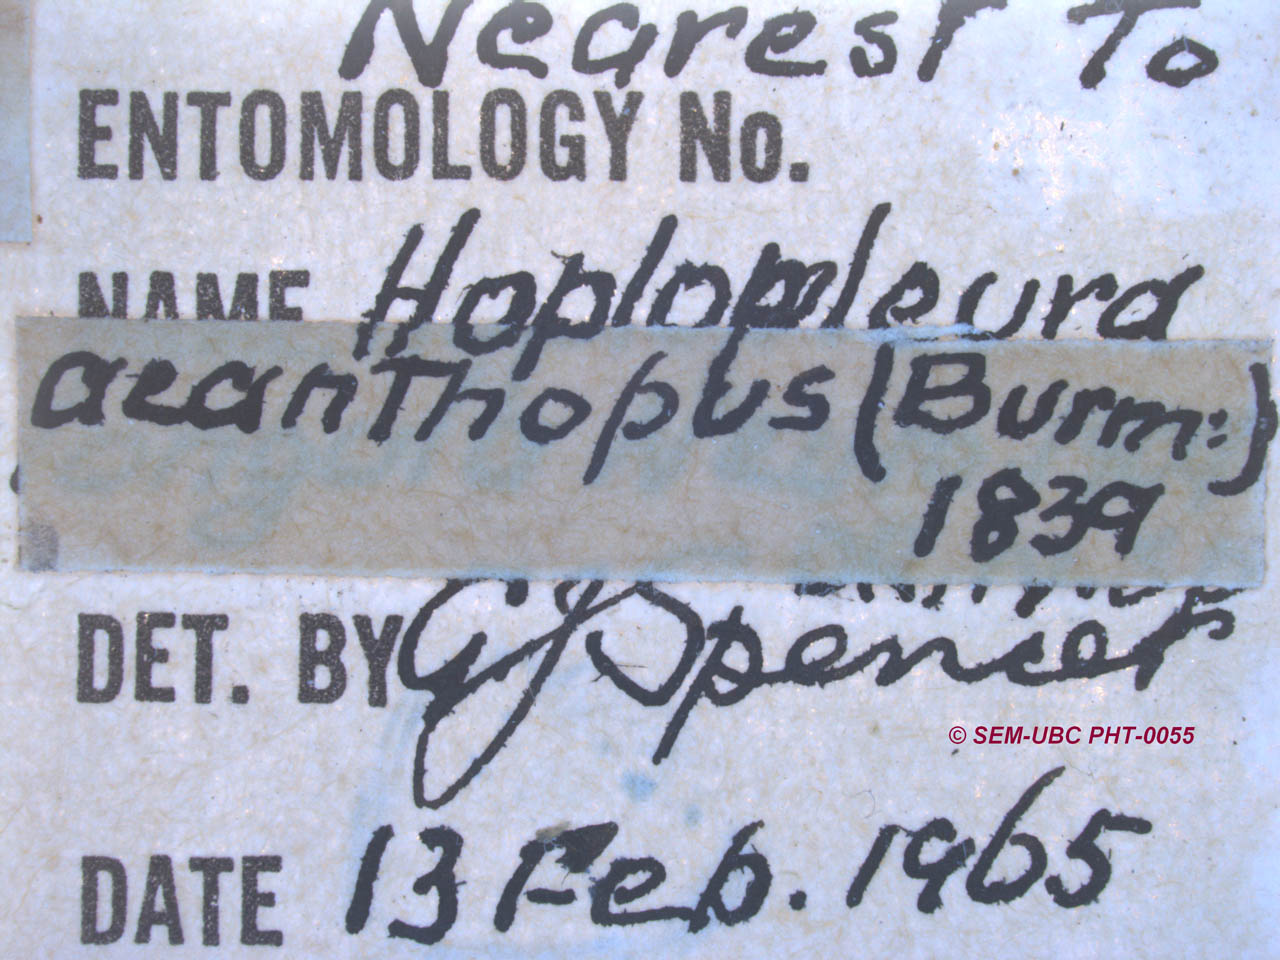 Nearest To
ENTOMOLOGY No.
NAME Hoplopleura
acanthopus (Burm:)
1839
DET. BY GJSpencer
© SEM-UBC PHT-0055
DATE 13 Feb. 1965